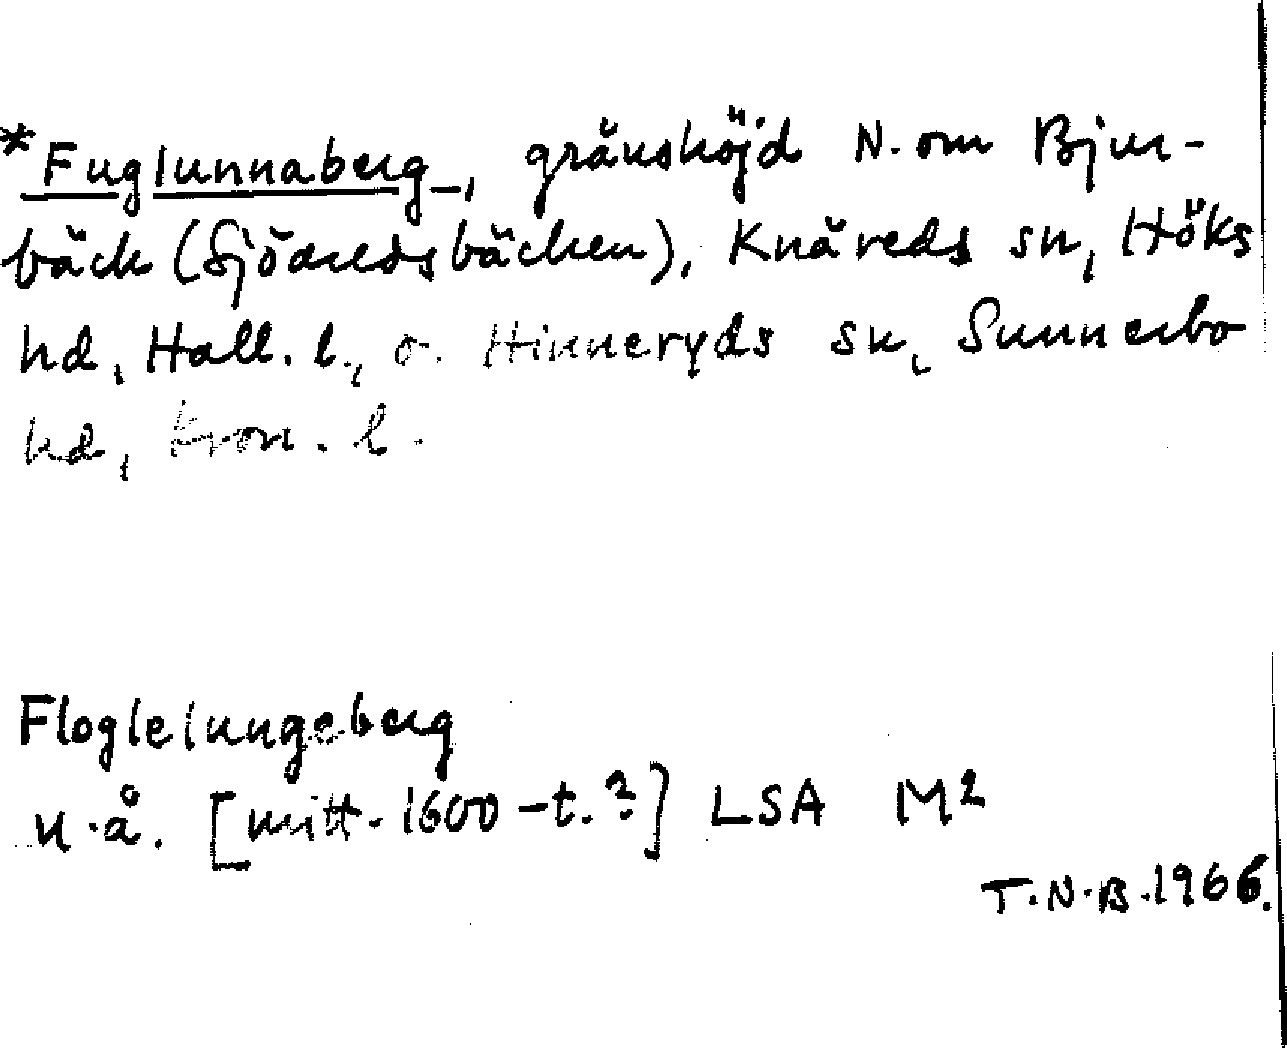 *Fuglunnaberg, gränshöjd N. om Bjur-
bäck (Sjöaredsbäcken), Knäreds sn, Höks
hd, Hall. l., o. Hinneryds sn, Sunnerbo
hd, Kron. l.
Floglelungeberg
u.å. [mitt. 1600-t.?] LSA M2
T.N.B. 1966.